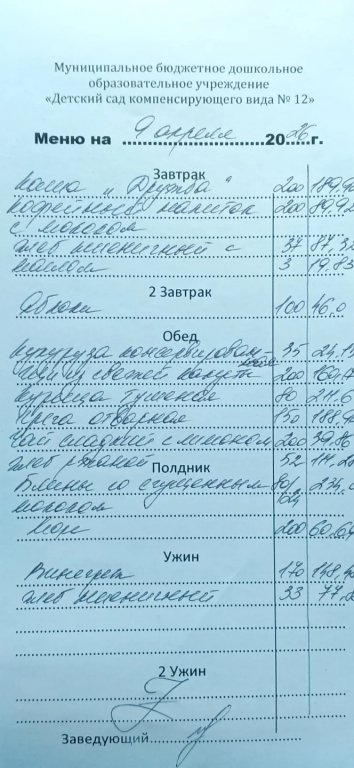 Муниципальное бюджетное дошкольное
образовательное учреждение
«Детский сад компенсирующего вида № 12»
Меню на 9 апреля 2026 г.
Завтрак
каша „Дружба“ 200 189,9
кофейный напиток 200 89,92
с молоком
хлеб пшеничный с 37 87,3
маслом 3 19,83
2 Завтрак
яблоки 100 46,0
Обед
кукуруза консервирован 35 24,1
щи из свежей капусты 200 160,
курица тушеная 80 211,6
греча отварная 150 188,9
чай сладкий с лимоном 200 39,86
хлеб ржаной 52 111,2
Полдник
Блины со сгущенным 80/ 234,0
молоком
Морс 200 60,64
Ужин
Винегрет 170 148,
хлеб пшеничный 33 77,
2 Ужин
Заведующий